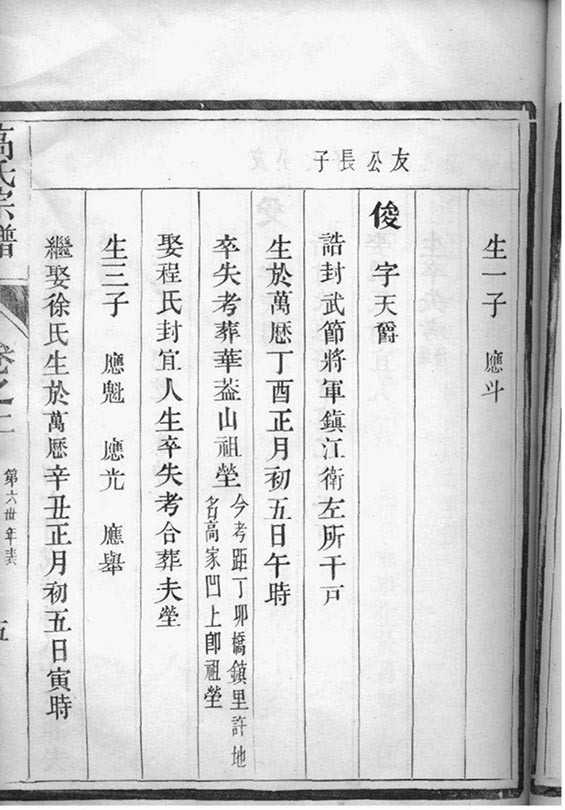 生一子 應斗
友公長子
俊 字天爵
誥封武節將軍鎮江衛左所千戸
生於萬厯丁酉正月初五日午時
卒失考葬華葢山祖塋
今考距丁卯橋鎮里許地
名高家凹上卽祖塋
娶程氏封宜人生卒失考合葬夫塋
生三子 應魁 應光 應舉
繼娶徐氏生於萬厯辛丑正月初五日寅時
高氏宗譜
卷之二
第六世年表
五